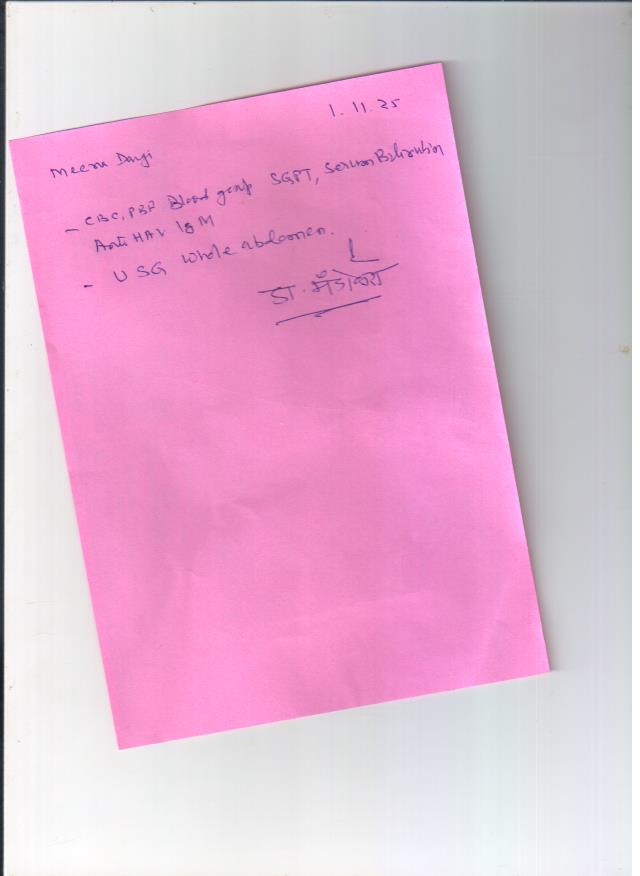 1.11.25
Meena Dangi
- CBC, PBF Blood group SGPT, Serum Bilirubin
Anti HAV IgM
- USG Whole abdomen.
डा.